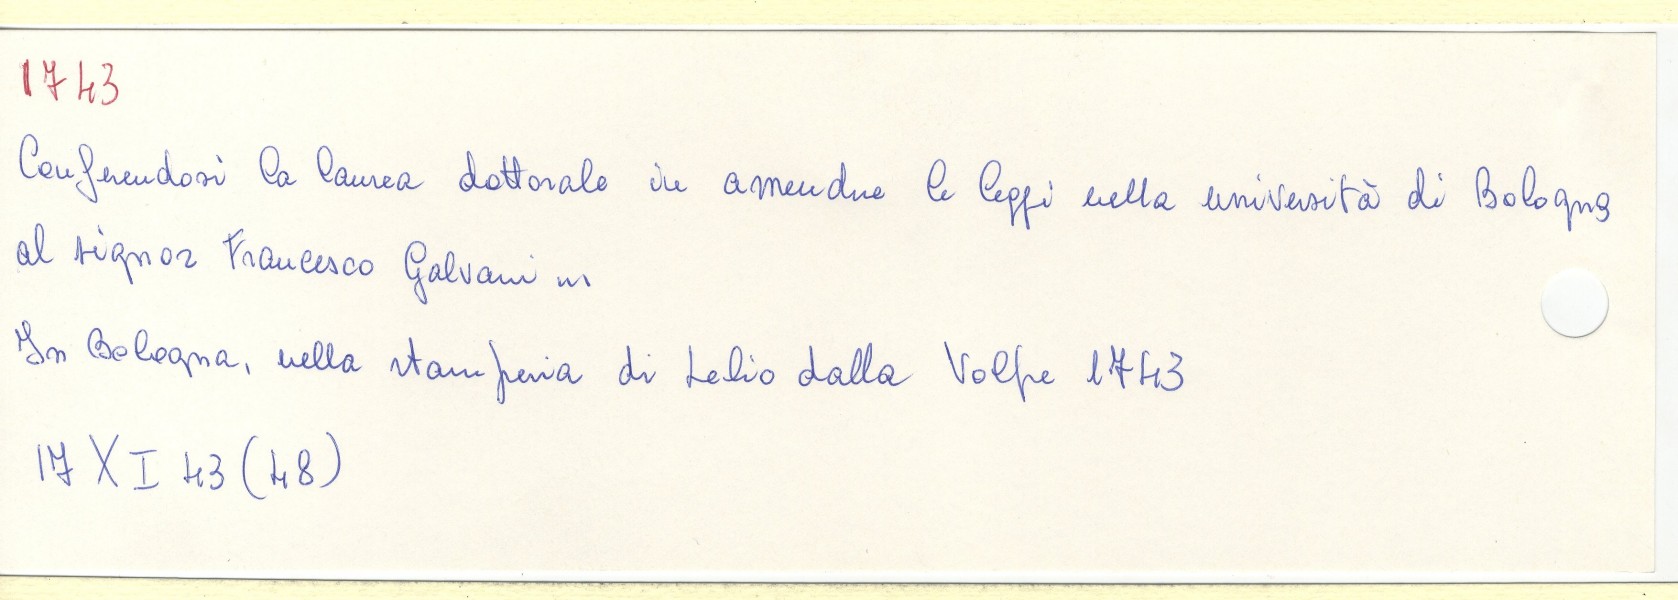 1743
Conferendosi la laurea dottorale in amendue le leggi nella università di Bologna
al signor Francesco Galvani ...
In Bologna, nella stamperia di Lelio dalla Volpe 1743
17 XI 43 (48)